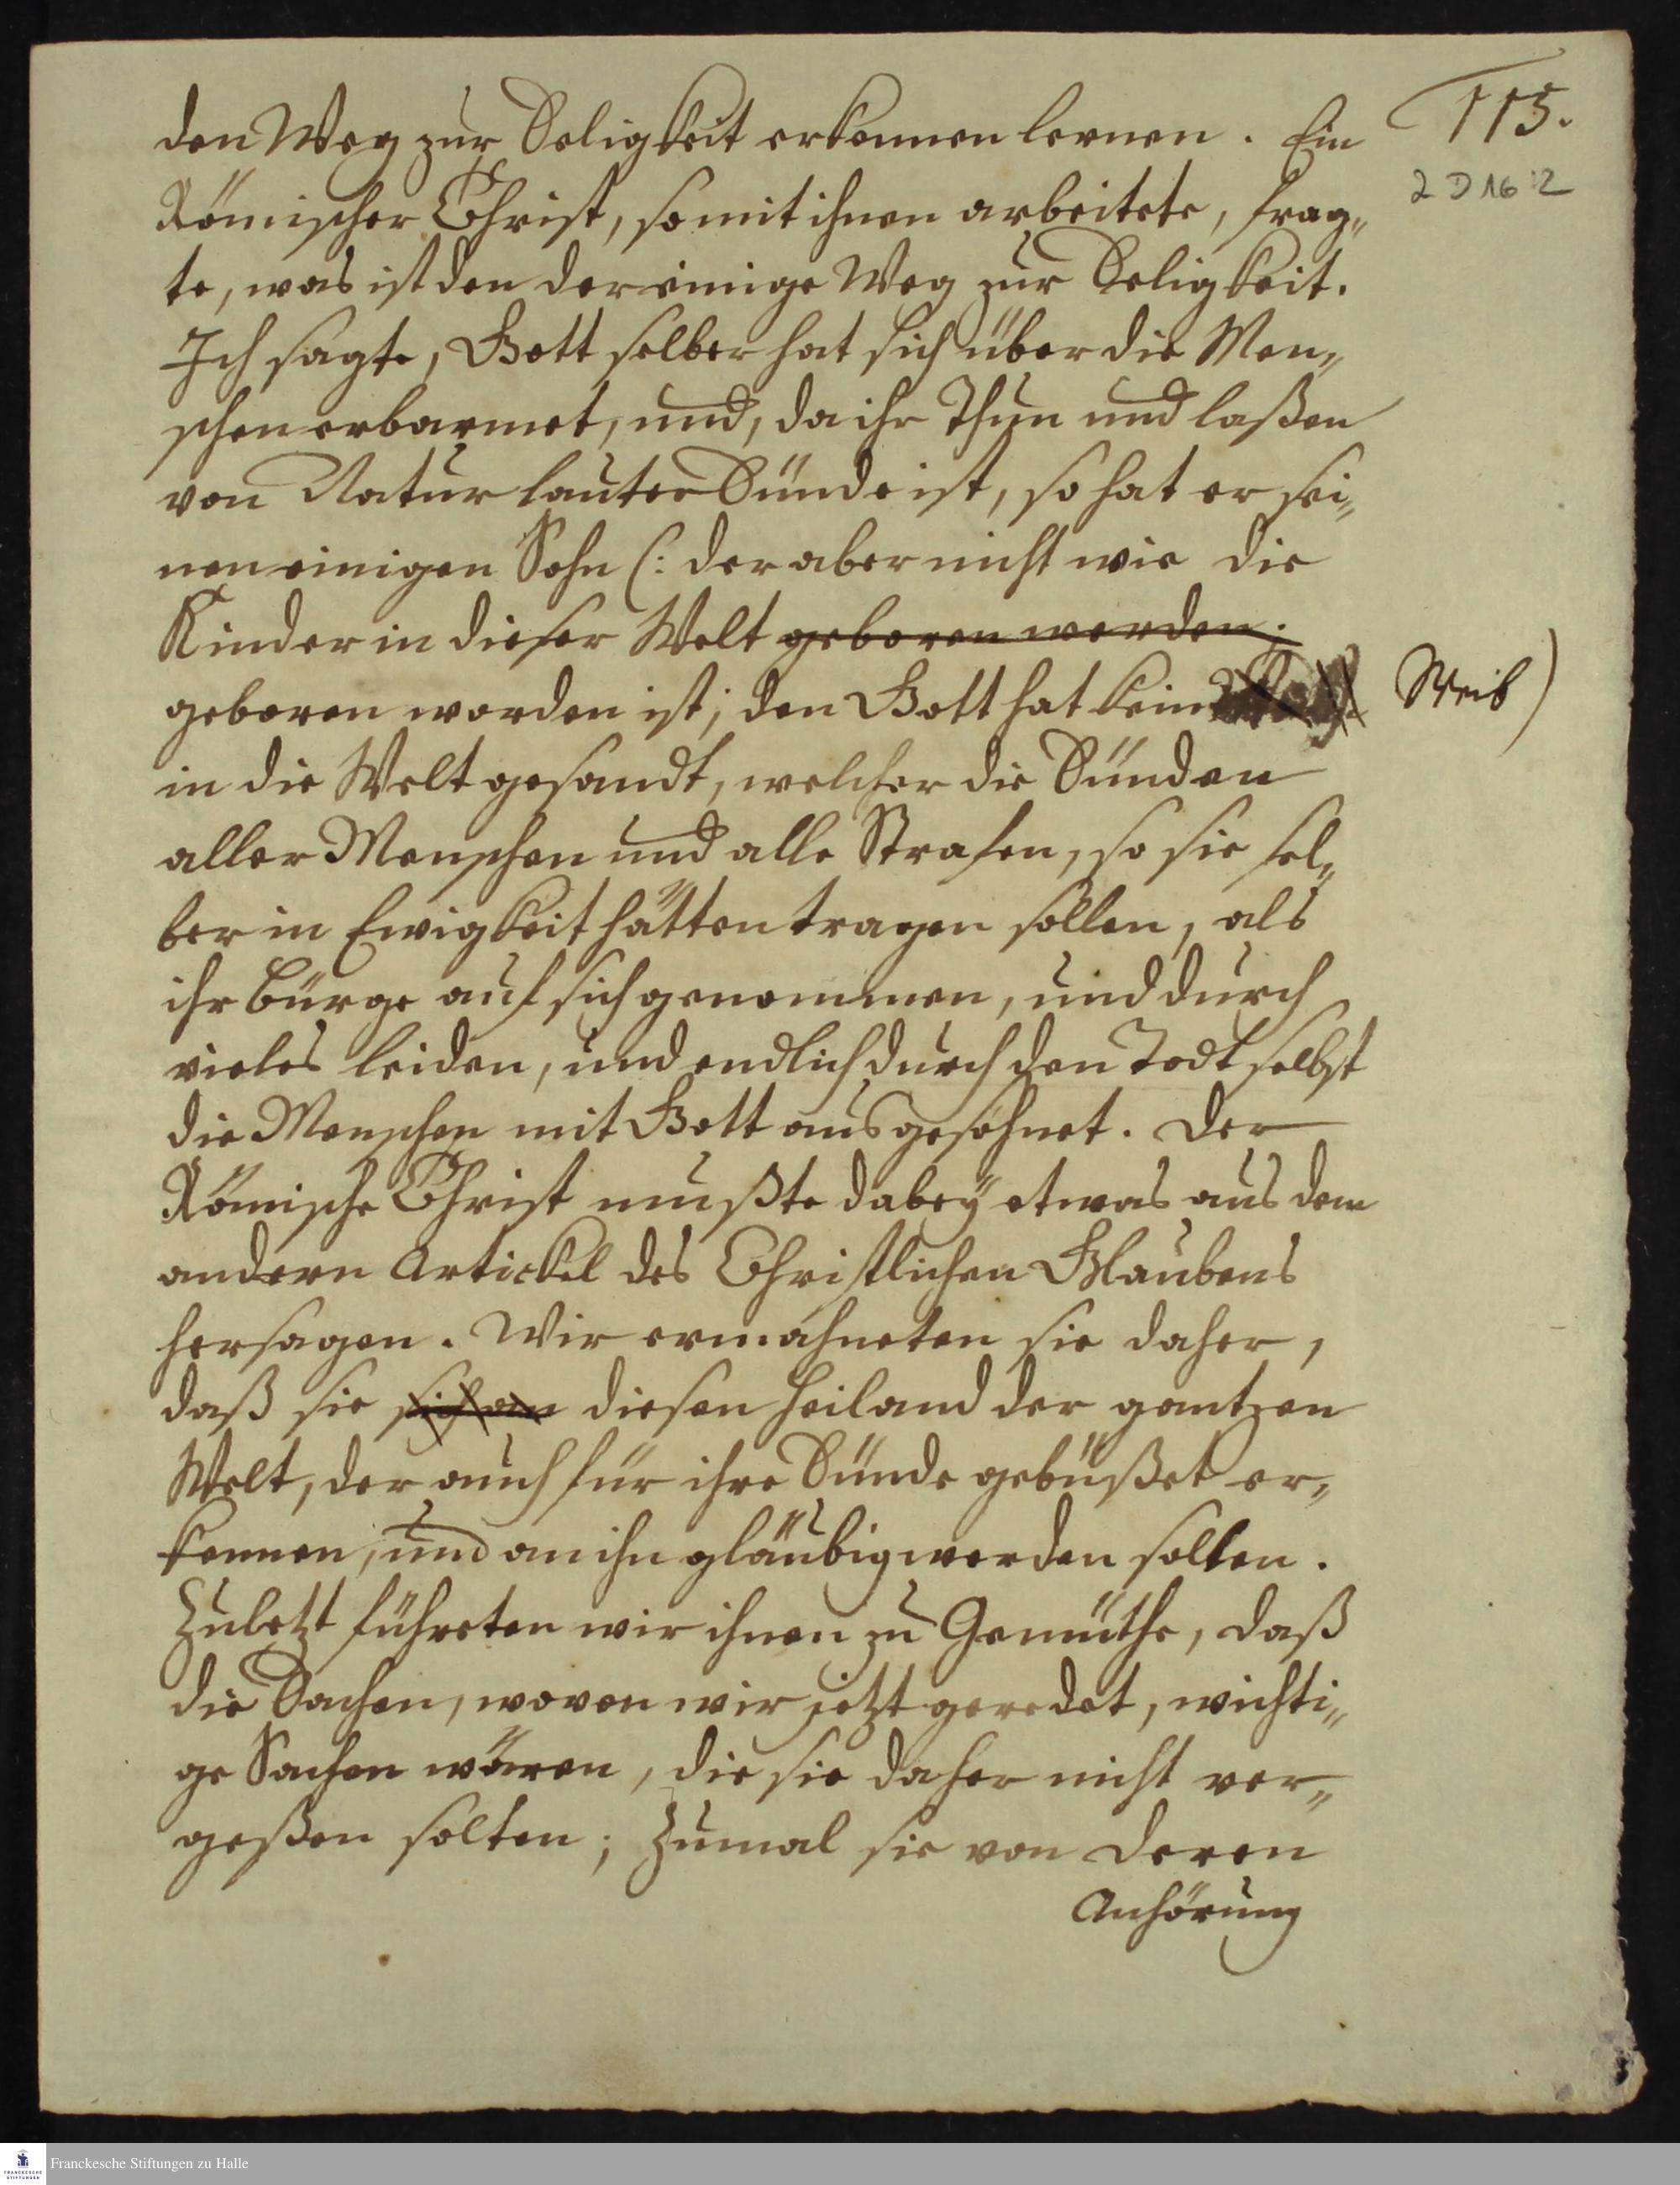 115.
2 D 16:2
den Weg zur Seligkeit erkennen lernen. Ein
Römischer Christ, so mit ihnen arbeitete, frag„
te, was ist den der einige Weg zur Seligkeit.
Ich sagte, Gott selber hat sich über die Men„
schen erbarmet, und, da ihr Thun und laßen
von Natur lauter Sünde ist, so hat er sei„
nen einigen Sohn (: der aber nicht wie die
Kinder in dieser Welt geboren werden;
geboren worden ist; den Gott hat kein Weib)
in die Welt gesandt, welcher die Sünden
aller Menschen und alle Strafen, so sie sel„
ber in Ewigkeit hätten tragen sollen, als
ihr Bürge auf sich genommen, und durch
vieles leiden, und endlich durch den Todt selbst
die Menschen mit Gott ausgesöhnet. Der
Römische Christ mußte dabeÿ etwas aus dem
andern Artickel des Christlichen Glaubens
hersagen. Wir ermahneten sie daher,
daß sie sich an diesen Heiland der gantzen
Welt, der auch für ihre Sünde gebüßet er„
kennen, und an ihn gläubig werden solten.
Zuletzt führeten wir ihnen zu Gemüthe, daß
die Sachen, wovon wir jetzt geredet, wichti„
ge Sachen wären, die sie daher nicht ver„
geßen solten; Zumal sie von deren
Anhörung
Franckesche Stiftungen zu Halle